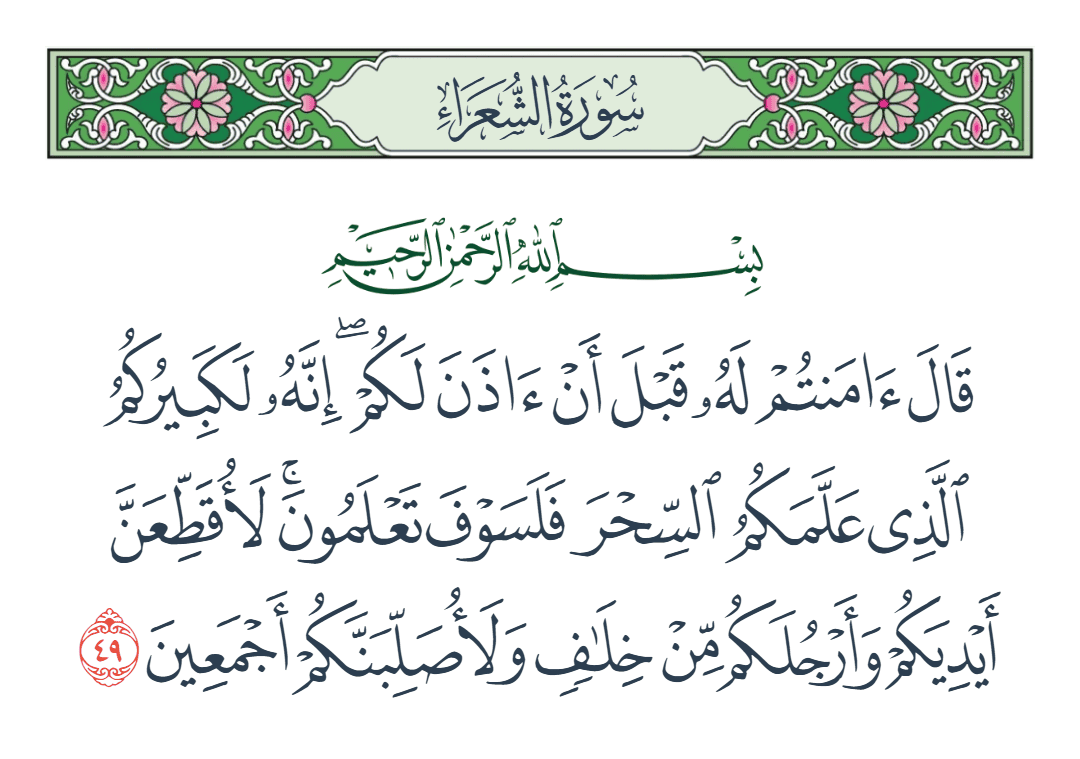 سُورَةُ الشُّعَرَاءِ
بِسْمِ ٱللَّهِ ٱلرَّحْمَٰنِ ٱلرَّحِيمِ
قَالَ ءَامَنتُمْ لَهُۥ قَبْلَ أَنْ ءَاذَنَ لَكُمْ ۖ إِنَّهُۥ لَكَبِيرُكُمُ
ٱلَّذِى عَلَّمَكُمُ ٱلسِّحْرَ فَلَسَوْفَ تَعْلَمُونَ ۚ لَأُقَطِّعَنَّ
أَيْدِيَكُمْ وَأَرْجُلَكُم مِّنْ خِلَٰفٍ وَلَأُصَلِّبَنَّكُمْ أَجْمَعِينَ ٤٩